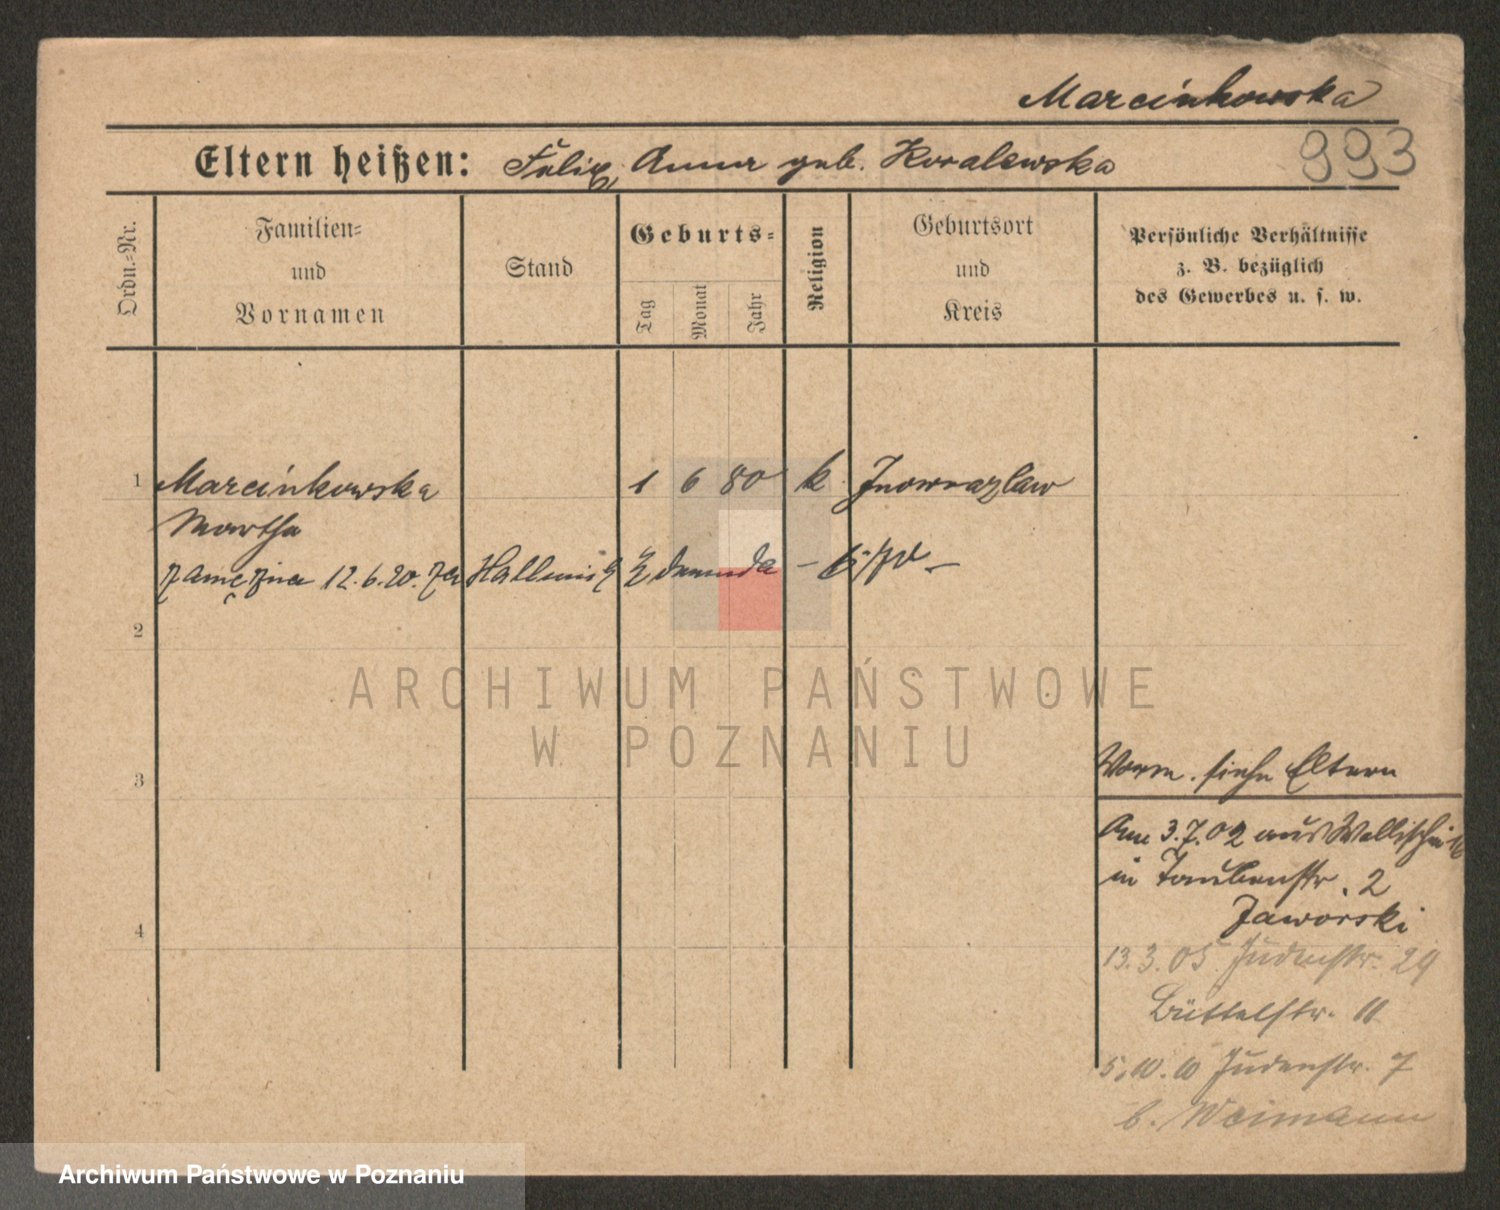 Marcinkowska
Eltern heißen: Felix, Anna geb. Koralewska
993
Ordn.-Nr.
Familien-
und
Vornamen
Stand
Geburts-
Tag
Monat
Jahr
Religion
Geburtsort
und
Kreis
Persönliche Verhältnisse
z. B. bezüglich
des Gewerbes u. s. w.
1 Marcinkowska 1 6 80 k Inowrazlaw
Martha
zamężna 12.6.20. za
2
3
4
Vorm. siehe Eltern
Am 3.7.02 aus Wallischei 16
in Taubenstr. 2
Jaworski
13.3.05 Judenstr. 29
Büttelstr. 11
5.10.10 Judenstr. 7
b. Weimann
ARCHIWUM PAŃSTWOWE
W POZNANIU
Archiwum Państwowe w Poznaniu